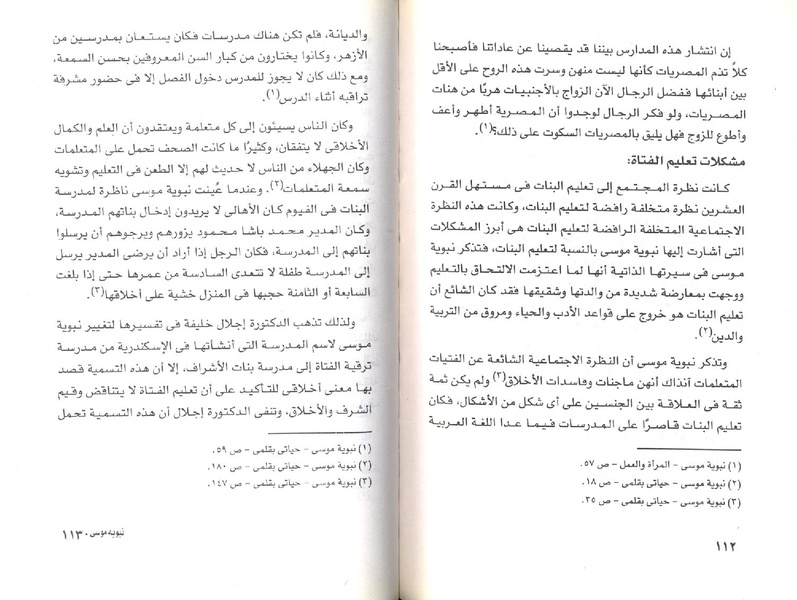 إن انتشار هذه المدارس بيننا قد يقصينا عن عاداتنا فأصبحنا
كلاً تذم المصريات كأنها ليست منهن وسرت هذه الروح على الأقل
بين أبنائها ففضل الرجال الآن الزواج بالأجنبيات هربًا من هنات
المصريات، ولو فكر الرجال لوجدوا أن المصرية أطهر وأعف
وأطوع للزوج فهل يليق بالمصريات السكوت على ذلك؟(١).
مشكلات تعليم الفتاة:
كانت نظرة المجتمع إلى تعليم البنات فى مستهل القرن
العشرين نظرة متخلفة رافضة لتعليم البنات، وكانت هذه النظرة
الاجتماعية المتخلفة الرافضة لتعليم البنات هى أبرز المشكلات
التى أشارت إليها نبوية موسى بالنسبة لتعليم البنات، فتذكر نبوية
موسى فى سيرتها الذاتية أنها لما اعتزمت الالتحاق بالتعليم
ووجهت بمعارضة شديدة من والدتها وشقيقها فقد كان الشائع أن
تعليم البنات هو خروج على قواعد الأدب والحياء ومروق من التربية
والدين(٢).
وتذكر نبوية موسى أن النظرة الاجتماعية الشائعة عن الفتيات
المتعلمات آنذاك أنهن ماجنات وفاسدات الأخلاق(٣) ولم يكن ثمة
ثقة فى العلاقة بين الجنسين على أى شكل من الأشكال، فكان
تعليم البنات قاصرًا على المدرسات فيما عدا اللغة العربية
(١) نبوية موسى - المرأة والعمل - ص ٥٧.
(٢) نبوية موسى - حياتى بقلمى - ص ١٨.
(٣) نبوية موسى - حياتى بقلمى - ص ٣٥.
١١٢
والديانة، فلم تكن هناك مدرسات فكان يستعان بمدرسين من
الأزهر، وكانوا يختارون من كبار السن المعروفين بحسن السمعة،
ومع ذلك كان لا يجوز للمدرس دخول الفصل إلا فى حضور مشرفة
تراقبه أثناء الدرس(١).
وكان الناس يسيئون إلى كل متعلمة ويعتقدون أن العلم والكمال
الأخلاقى لا يتفقان، وكثيرًا ما كانت الصحف تحمل على المتعلمات
وكان الجهلاء من الناس لا حديث لهم إلا الطعن فى التعليم وتشويه
سمعة المتعلمات(٢). وعندما عُينت نبوية موسى ناظرة لمدرسة
البنات فى الفيوم كان الأهالى لا يريدون إدخال بناتهم المدرسة،
وكان المدير محمد باشا محمود يزورهم ويرجوهم أن يرسلوا
بناتهم إلى المدرسة، فكان الرجل إذا أراد أن يرضى المدير يرسل
إلى المدرسة طفلة لا تتعدى السادسة من عمرها حتى إذا بلغت
السابعة أو الثامنة حجبها فى المنزل خشية على أخلاقها(٣).
ولذلك تذهب الدكتورة إجلال خليفة فى تفسيرها لتغيير نبوية
موسى لاسم المدرسة التى أنشأتها فى الإسكندرية من مدرسة
ترقية الفتاة إلى مدرسة بنات الأشراف، إلا أن هذه التسمية قصد
بها معنى أخلاقى للتأكيد على أن تعليم الفتاة لا يتناقض وقيم
الشرف والأخلاق، وتنفى الدكتورة إجلال أن هذه التسمية تحمل
(١) نبوية موسى - حياتى بقلمى - ص ٥٩.
(٢) نبوية موسى - حياتى بقلمى - ص ١٨٠.
(٣) نبوية موسى - حياتى بقلمى - ص ١٤٧.
نبوية موسى - ١١٣